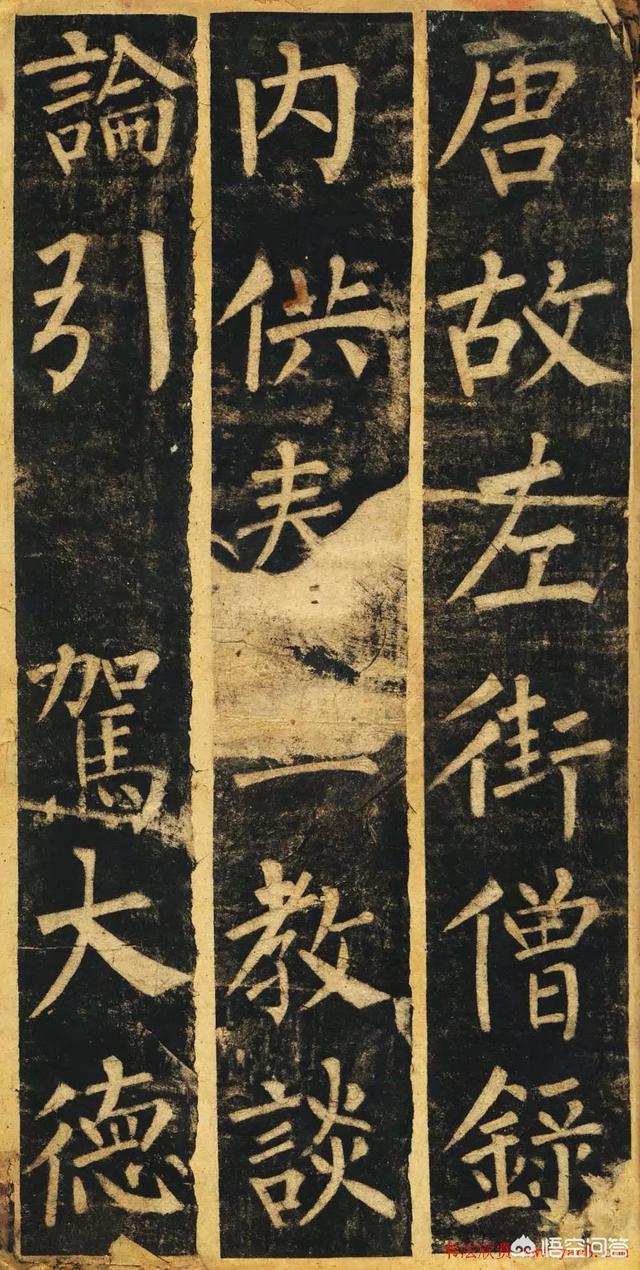 唐故左街僧錄
内供奉教談
論引駕大德
书法欣赏
悟空问答